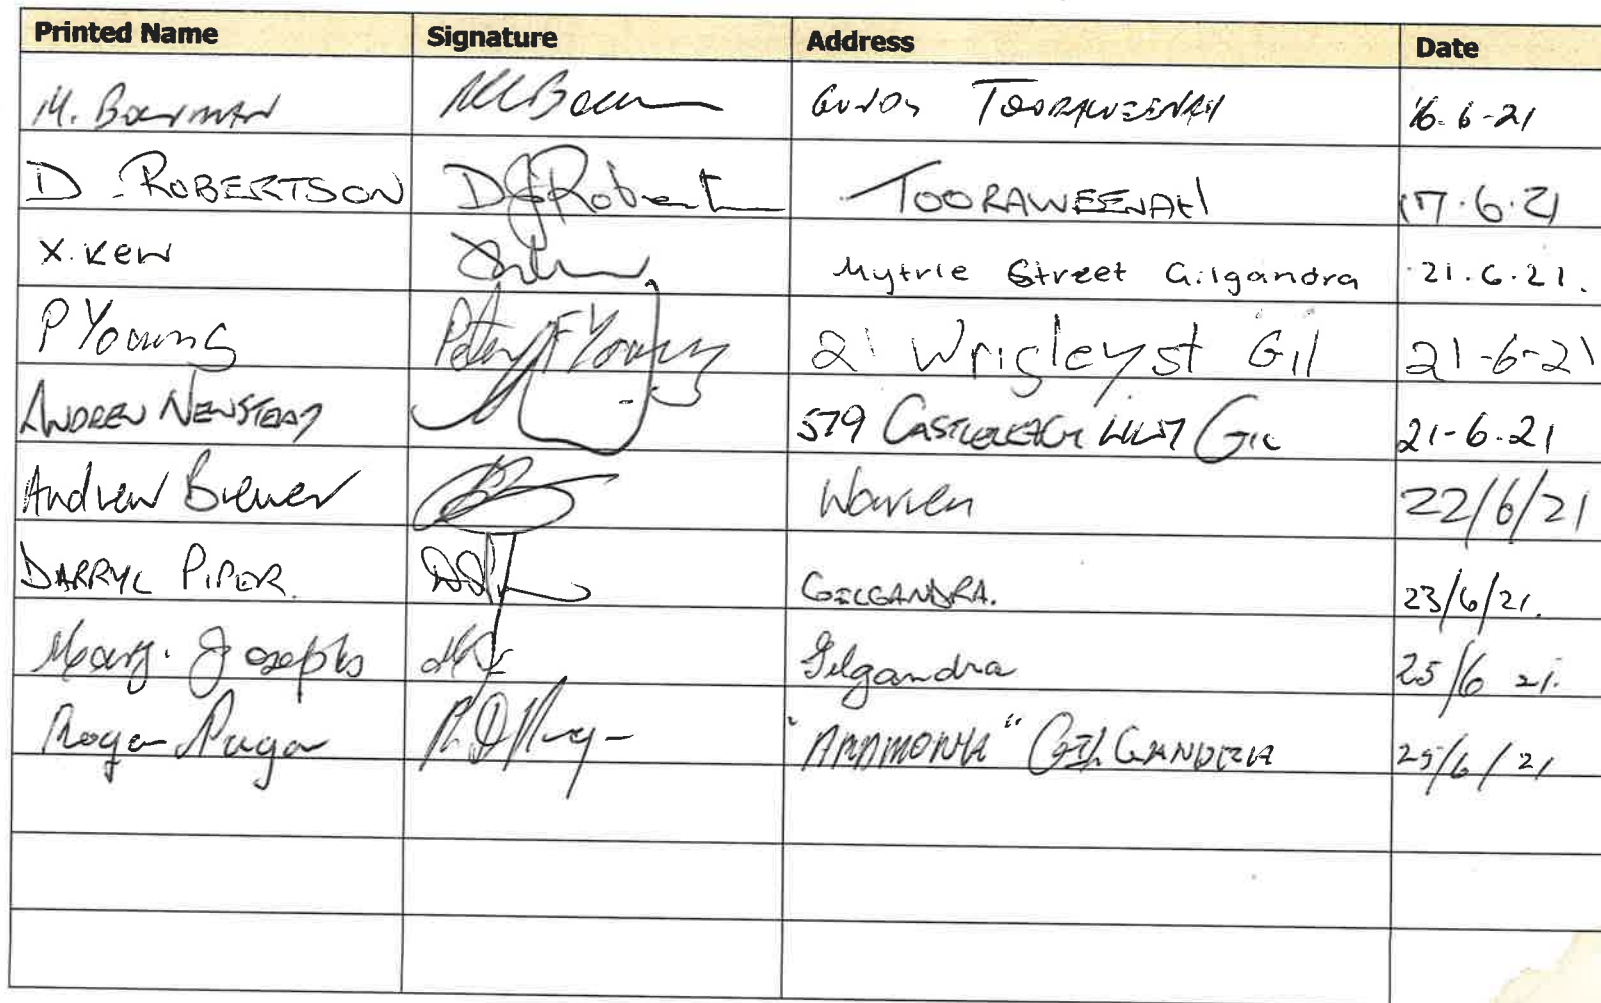 Printed Name Signature Address Date
M. Bowman TOORAWEENAH 16-6-21
D. ROBERTSON DJRobert TOORAWEENAH 17.6.21
X. Kew Mytrle Street Gilgandra 21.6.21.
P Young Peter F Young 21 Wrigley st Gil 21-6-21
ANDREW NEWSTEAD 579 CASTLEREAGH HWY GIL 21-6-21
Andrew Brewer Warren 22/6/21
DARRYL PIPER. GILGANDRA. 23/6/21.
Marg. Josephs Gilgandra 25/6 21.
GILGANDRA 25/6/21